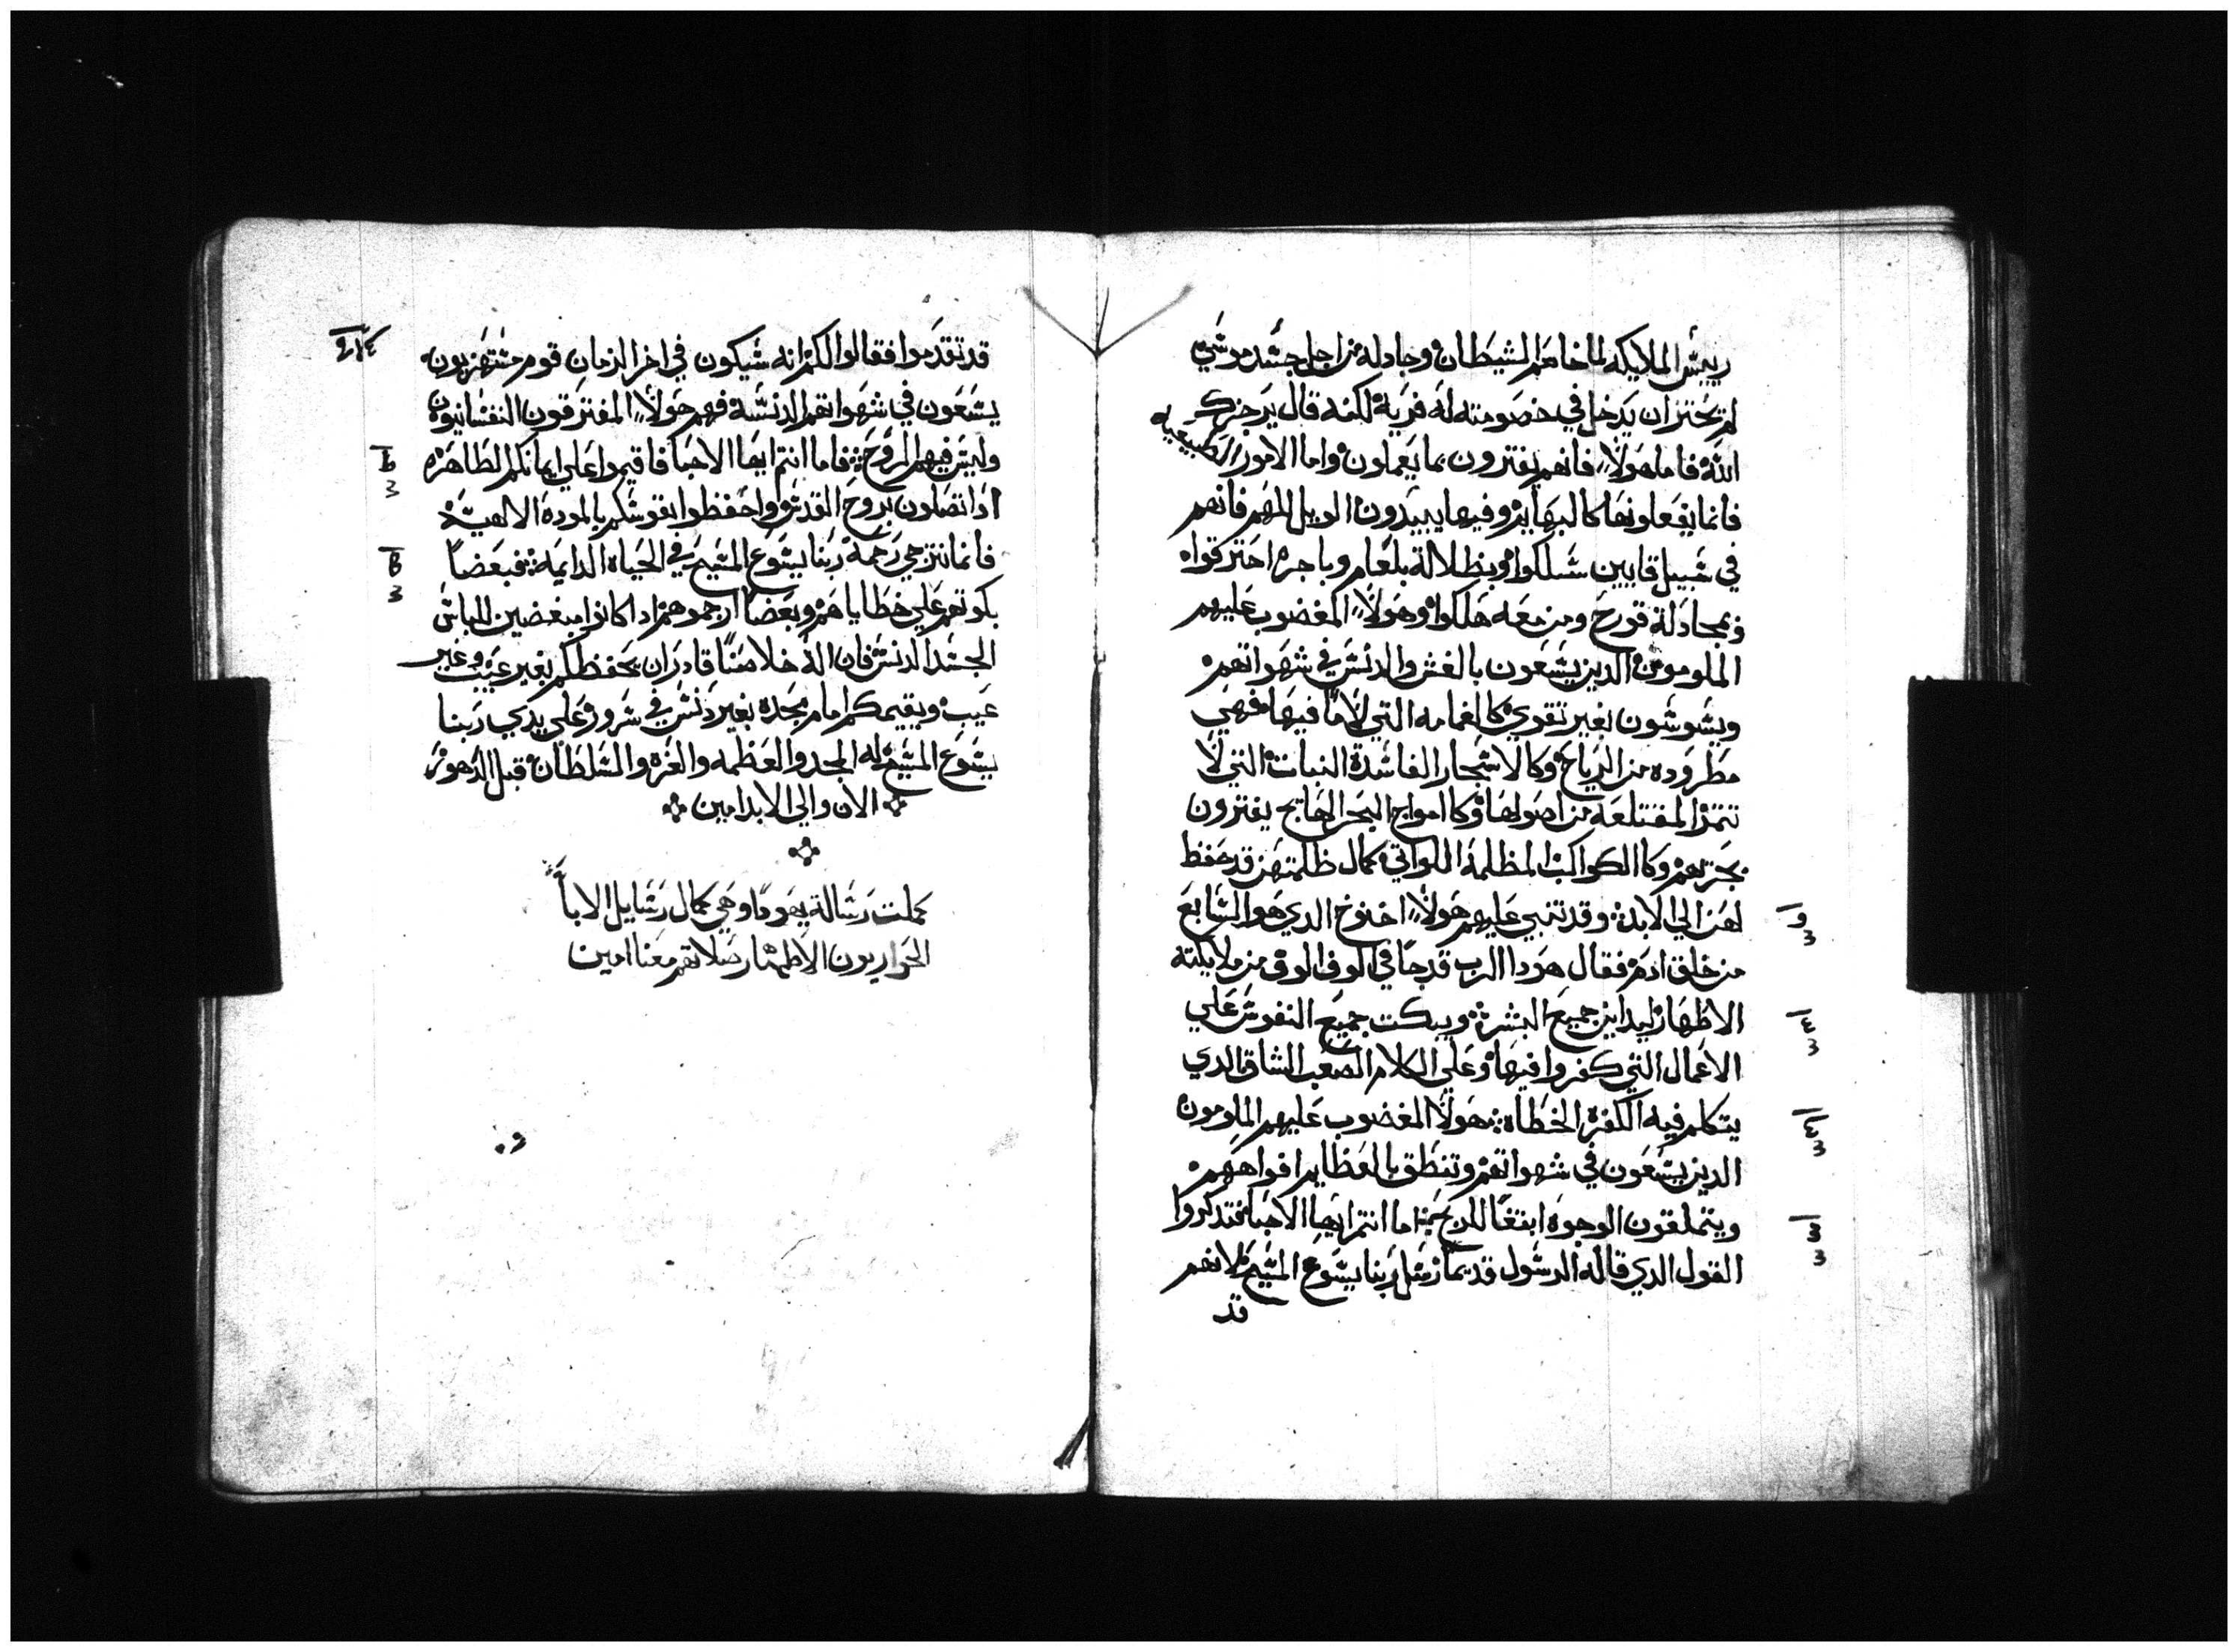 رييس الملايكه لما خاصم الشيطان وجادله من اجل جسد موسي
لم يجتز ان يدخل في خصومته له فرية لكنه قال يزجرك
الله فاما هولاء فانهم يفترون بما يعملون واما الامور الطبيعيه
فانما يفعلونها كالبهايم وفيها يبيدون الويل لهم فانهم
في سبيل قايين سلكوا وبظلالة بلعام وباجره احترقوا
وبمجادلة قورح ومن معه هلكوا وهولاء المغضوب عليهم
الملومون الدين يسعون بالغش والدنس في شهواتهم
ويسوسون بغير تقوي كالغمامه التي لا ما فيها فهي
مطروده من الرياح وكالاشجار الفاسدة النبات التي لا
تتمر المقتلعه من اصولها وكامواج البحر الهايج يفترون
بخزيهم وكالكواكب المظلمة اللواتي كمال ظلمتهن قد حفظ
لهن الي الابد وقد تنبي عليهم هولاء اخنوخ الدي هو السابع
من خلق ادم فقال هودا الرب قد جا في الوف الوف من ملايكته
الاطهار ليداين جميع البشر ويبكت جميع النفوس علي
الاعمال التي كفروا فيها وعلي الكلام الصعب الشاق الدي
يتكلم فيه الكفره الخطاه هولاء المغضوب عليهم الملومون
الدين يسعون في شهواتهم وتنطق بالعظايم افواههم
ويتملقون الوجوه ابتغا للربح اما انتم ايها الاحبا فتدكروا
القول الدي قاله الرسول قديما رسل ربنا يسوع المسيح لانهم
قد
قد تقدموا فقالوا لكم انه سيكون في اخر الزمان قوم مستهزيون
يسعون في شهواتهم الدنسة فهم هولاء المفترقون النفسانيون
وليس فيهم الروح فاما انتم ايها الاحبا فاقيموا علي ايمانكم الطاهره
ادا تصلون بروح القدس واحفظوا نفوسكم بالمودة الالهية
فانما نترجي رحمة ربنا يسوع المسيح في الحياه الدايمة فبعضا
بكوتهم علي خطاياهم وبعضا ارحموهم ادا كانوا مبغضين للباس
الجسد الدنس فان الله خلاصنا قادر ان يحفظكم بغير عيب وغير
عيب ويقيمكم امام مجده بغير دنس في سرور علي يدي ربنا
يسوع المسيح له المجد والعظمه والعزه والسلطان قبل الدهور
الان والي الابد امين
كملت رسالة يهودا وهي كمال رسايل الابا
الحواريون الاطهار صلاتهم معنا امين